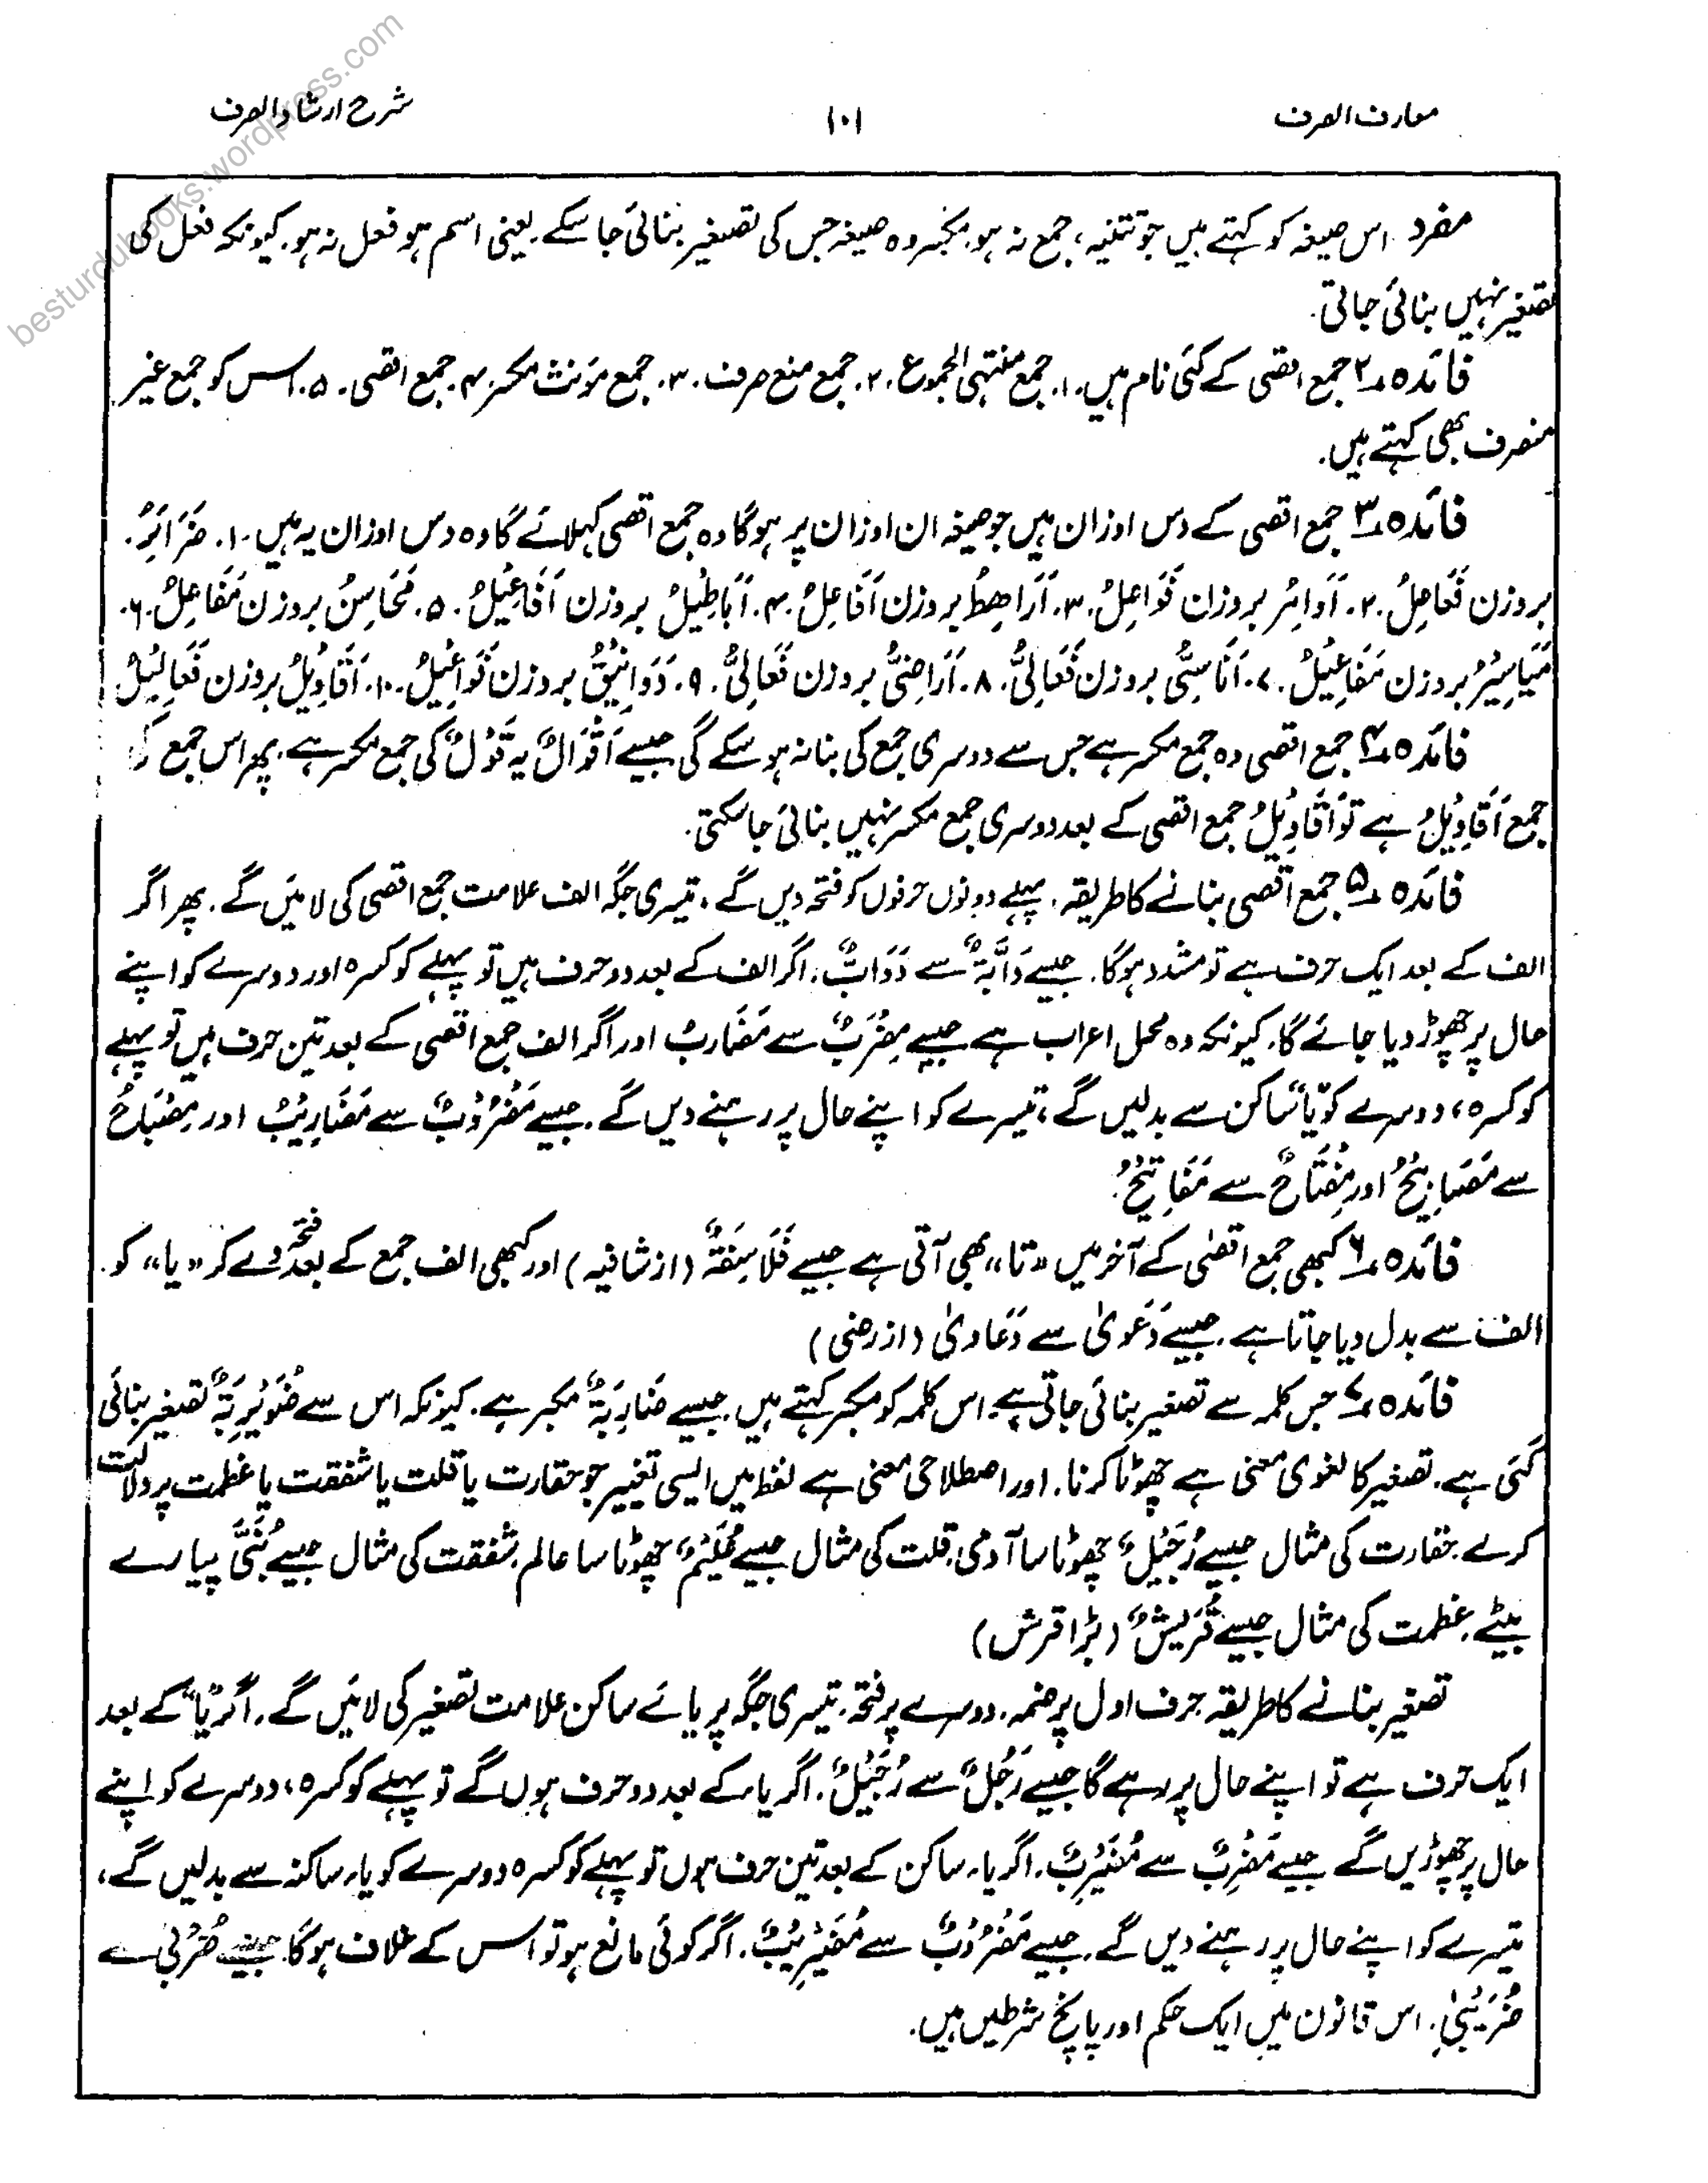 besturdubooks.wordpress.com
معارف الصرف
۱۰۱
شرح ارشاد الصرف
مفرد اس صیغہ کو کہتے ہیں جو تثنیہ، جمع نہ ہو. مکبر وہ صیغہ جس کی تصغیر بنائی جا سکے. یعنی اسم ہو فعل نہ ہو. کیونکہ فعل کی
تصغیر نہیں بنائی جاتی.
فائدہ ۲ جمع اقصی کے کئی نام ہیں. ۱. جمع منتہی الجموع. ۲. جمع منع صرف. ۳. جمع مؤنث مکسر. ۴. جمع اقصی. ۵. اس کو جمع غیر
منصرف بھی کہتے ہیں.
فائدہ ۳ جمع اقصی کے دس اوزان ہیں جو صیغہ ان اوزان پر ہوگا وہ جمع اقصی کہلائے گا وہ دس اوزان یہ ہیں. ۱. ضَرَائِرُ.
بروزن فَعَاعِلُ. ۲. اَوَامِرُ بروزن فَوَاعِلُ. ۳. اَرَاهِطُ بروزن اَفَاعِلُ. ۴. اَبَاطِيْلُ بروزن اَفَاعِيْلُ. ۵. مَحَاسِنُ بروزن مَفَاعِلُ. ۶.
مَيَاسِيْرُ بروزن مَفَاعِيْلُ. ۷. اَنَاسِيُّ بروزن فَعَالِيُّ. ۸. اَرَاضِيُّ بروزن فَعَالِيُّ. ۹. دَوَانِيْقُ بروزن فَوَاعِيْلُ. ۱۰. اَقَاوِيْلُ بروزن فَعَالِيْلُ
فائدہ ۴ جمع اقصی وہ جمع مکسر ہے جس سے دوسری جمع کی بنا نہ ہو سکے گی جیسے اَقْوَالٌ یہ قَوْلٌ کی جمع مکسر ہے. پھر اس جمع کی
جمع اَقَاوِيْلُ ہے تو اَقَاوِيْلُ جمع اقصی کے بعد دوسری جمع مکسر نہیں بنائی جا سکتی.
فائدہ ۵ جمع اقصی بنانے کا طریقہ. پہلے دونوں حرفوں کو فتحہ دیں گے، تیسری جگہ الف علامت جمع اقصی کی لائیں گے. پھر اگر
الف کے بعد ایک حرف ہے تو مشدد ہوگا. جیسے دَابَّةٌ سے دَوَابُّ. اگر الف کے بعد دو حرف ہیں تو پہلے کو کسرہ اور دوسرے کو اپنے
حال پر چھوڑ دیا جائے گا. کیونکہ وہ محل اعراب ہے جیسے مِضْرَبٌ سے مَضَارِبُ اور اگر الف جمع اقصی کے بعد تین حرف ہیں تو پہلے
کو کسرہ، دوسرے کو "یا" ساکن سے بدلیں گے، تیسرے کو اپنے حال پر رہنے دیں گے. جیسے مَضْرُوْبٌ سے مَضَارِيْبُ اور مِصْبَاحٌ
سے مَصَابِيْحُ اور مِفْتَاحٌ سے مَفَاتِيْحُ.
فائدہ ۶ کبھی جمع اقصٰی کے آخر میں "تا" بھی آتی ہے جیسے فَلَاسِفَةٌ (از شافیہ) اور کبھی الف جمع کے بعد فتحہ دے کر "یا" کو
الف سے بدل دیا جاتا ہے. جیسے دَعْوٰی سے دَعَاوٰی (از رضی)
فائدہ ۷ جس کلمہ سے تصغیر بنائی جاتی ہے اس کلمہ کو مکبر کہتے ہیں. جیسے ضَارِبَةٌ مکبر ہے. کیونکہ اس سے ضُوَيْرِبَةٌ تصغیر بنائی
گئی ہے. تصغیر کا لغوی معنی ہے چھوٹا کرنا. اور اصطلاحی معنی ہے لفظ میں ایسی تغییر جو حقارت یا قلت یا شفقت یا عظمت پر دلالت
کرے. حقارت کی مثال جیسے رُجَيْلٌ چھوٹا سا آدمی. قلت کی مثال جیسے عُلَيْمٌ چھوٹا سا عالم. شفقت کی مثال جیسے بُنَيَّ پیارے
بیٹے. عظمت کی مثال جیسے قُرَيْشٌ (بڑا قرش)
تصغیر بنانے کا طریقہ حرف اول پر ضمہ. دوسرے پر فتحہ. تیسری جگہ پر یائے ساکن علامت تصغیر کی لائیں گے. اگر "یا" کے بعد
ایک حرف ہے تو اپنے حال پر رہے گا جیسے رَجُلٌ سے رُجَيْلٌ. اگر یاء کے بعد دو حرف ہوں گے تو پہلے کو کسرہ، دوسرے کو اپنے
حال پر چھوڑیں گے جیسے مَضْرِبٌ سے مُضَيْرِبٌ. اگر یاء ساکن کے بعد تین حرف ہوں تو پہلے کو کسرہ دوسرے کو یاء ساکنہ سے بدلیں گے،
تیسرے کو اپنے حال پر رہنے دیں گے. جیسے مَضْرُوْبٌ سے مُضَيْرِيْبٌ. اگر کوئی مانع ہو تو اس کے خلاف ہوگا. جیسے ضُرْبٰی سے
ضُرَيْبٰی. اس قانون میں ایک حکم اور پانچ شرطیں ہیں.